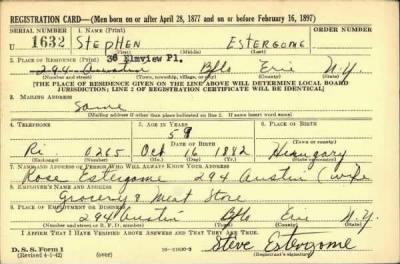 REGISTRATION CARD—(Men born on or after April 28, 1877 and on or before February 16, 1897)
SERIAL NUMBER 1. NAME (Print) ORDER NUMBER
U 1632 STEPHEN ESTERGOME
(First) (Middle) (Last)
36 Elmview Pl.
2. PLACE OF RESIDENCE (Print)
294 Austin Bflo Erie N.Y.
(Number and street) (Town, township, village, or city) (County) (State)
[THE PLACE OF RESIDENCE GIVEN ON THE LINE ABOVE WILL DETERMINE LOCAL BOARD
JURISDICTION; LINE 2 OF REGISTRATION CERTIFICATE WILL BE IDENTICAL]
3. MAILING ADDRESS
Same
(Mailing address if other than place indicated on line 2. If same insert word same)
4. TELEPHONE 5. AGE IN YEARS 6. PLACE OF BIRTH
59
DATE OF BIRTH Hungary
(Town or county)
Ri 0265 Oct 16 1882
(Exchange) (Number) (Mo.) (Day) (Yr.) (State or country)
7. NAME AND ADDRESS OF PERSON WHO WILL ALWAYS KNOW YOUR ADDRESS
Rose Estergome 294 Austin (wife
8. EMPLOYER'S NAME AND ADDRESS
Grocery & Meat Store
9. PLACE OF EMPLOYMENT OR BUSINESS
294 Austin Bflo Erie N.Y.
(Number and street or R. F. D. number) (Town) (County) (State)
I AFFIRM THAT I HAVE VERIFIED ABOVE ANSWERS AND THAT THEY ARE TRUE.
D. S. S. Form 1
(Revised 4-1-42) (over) Steve Estergome
(Registrant's signature)